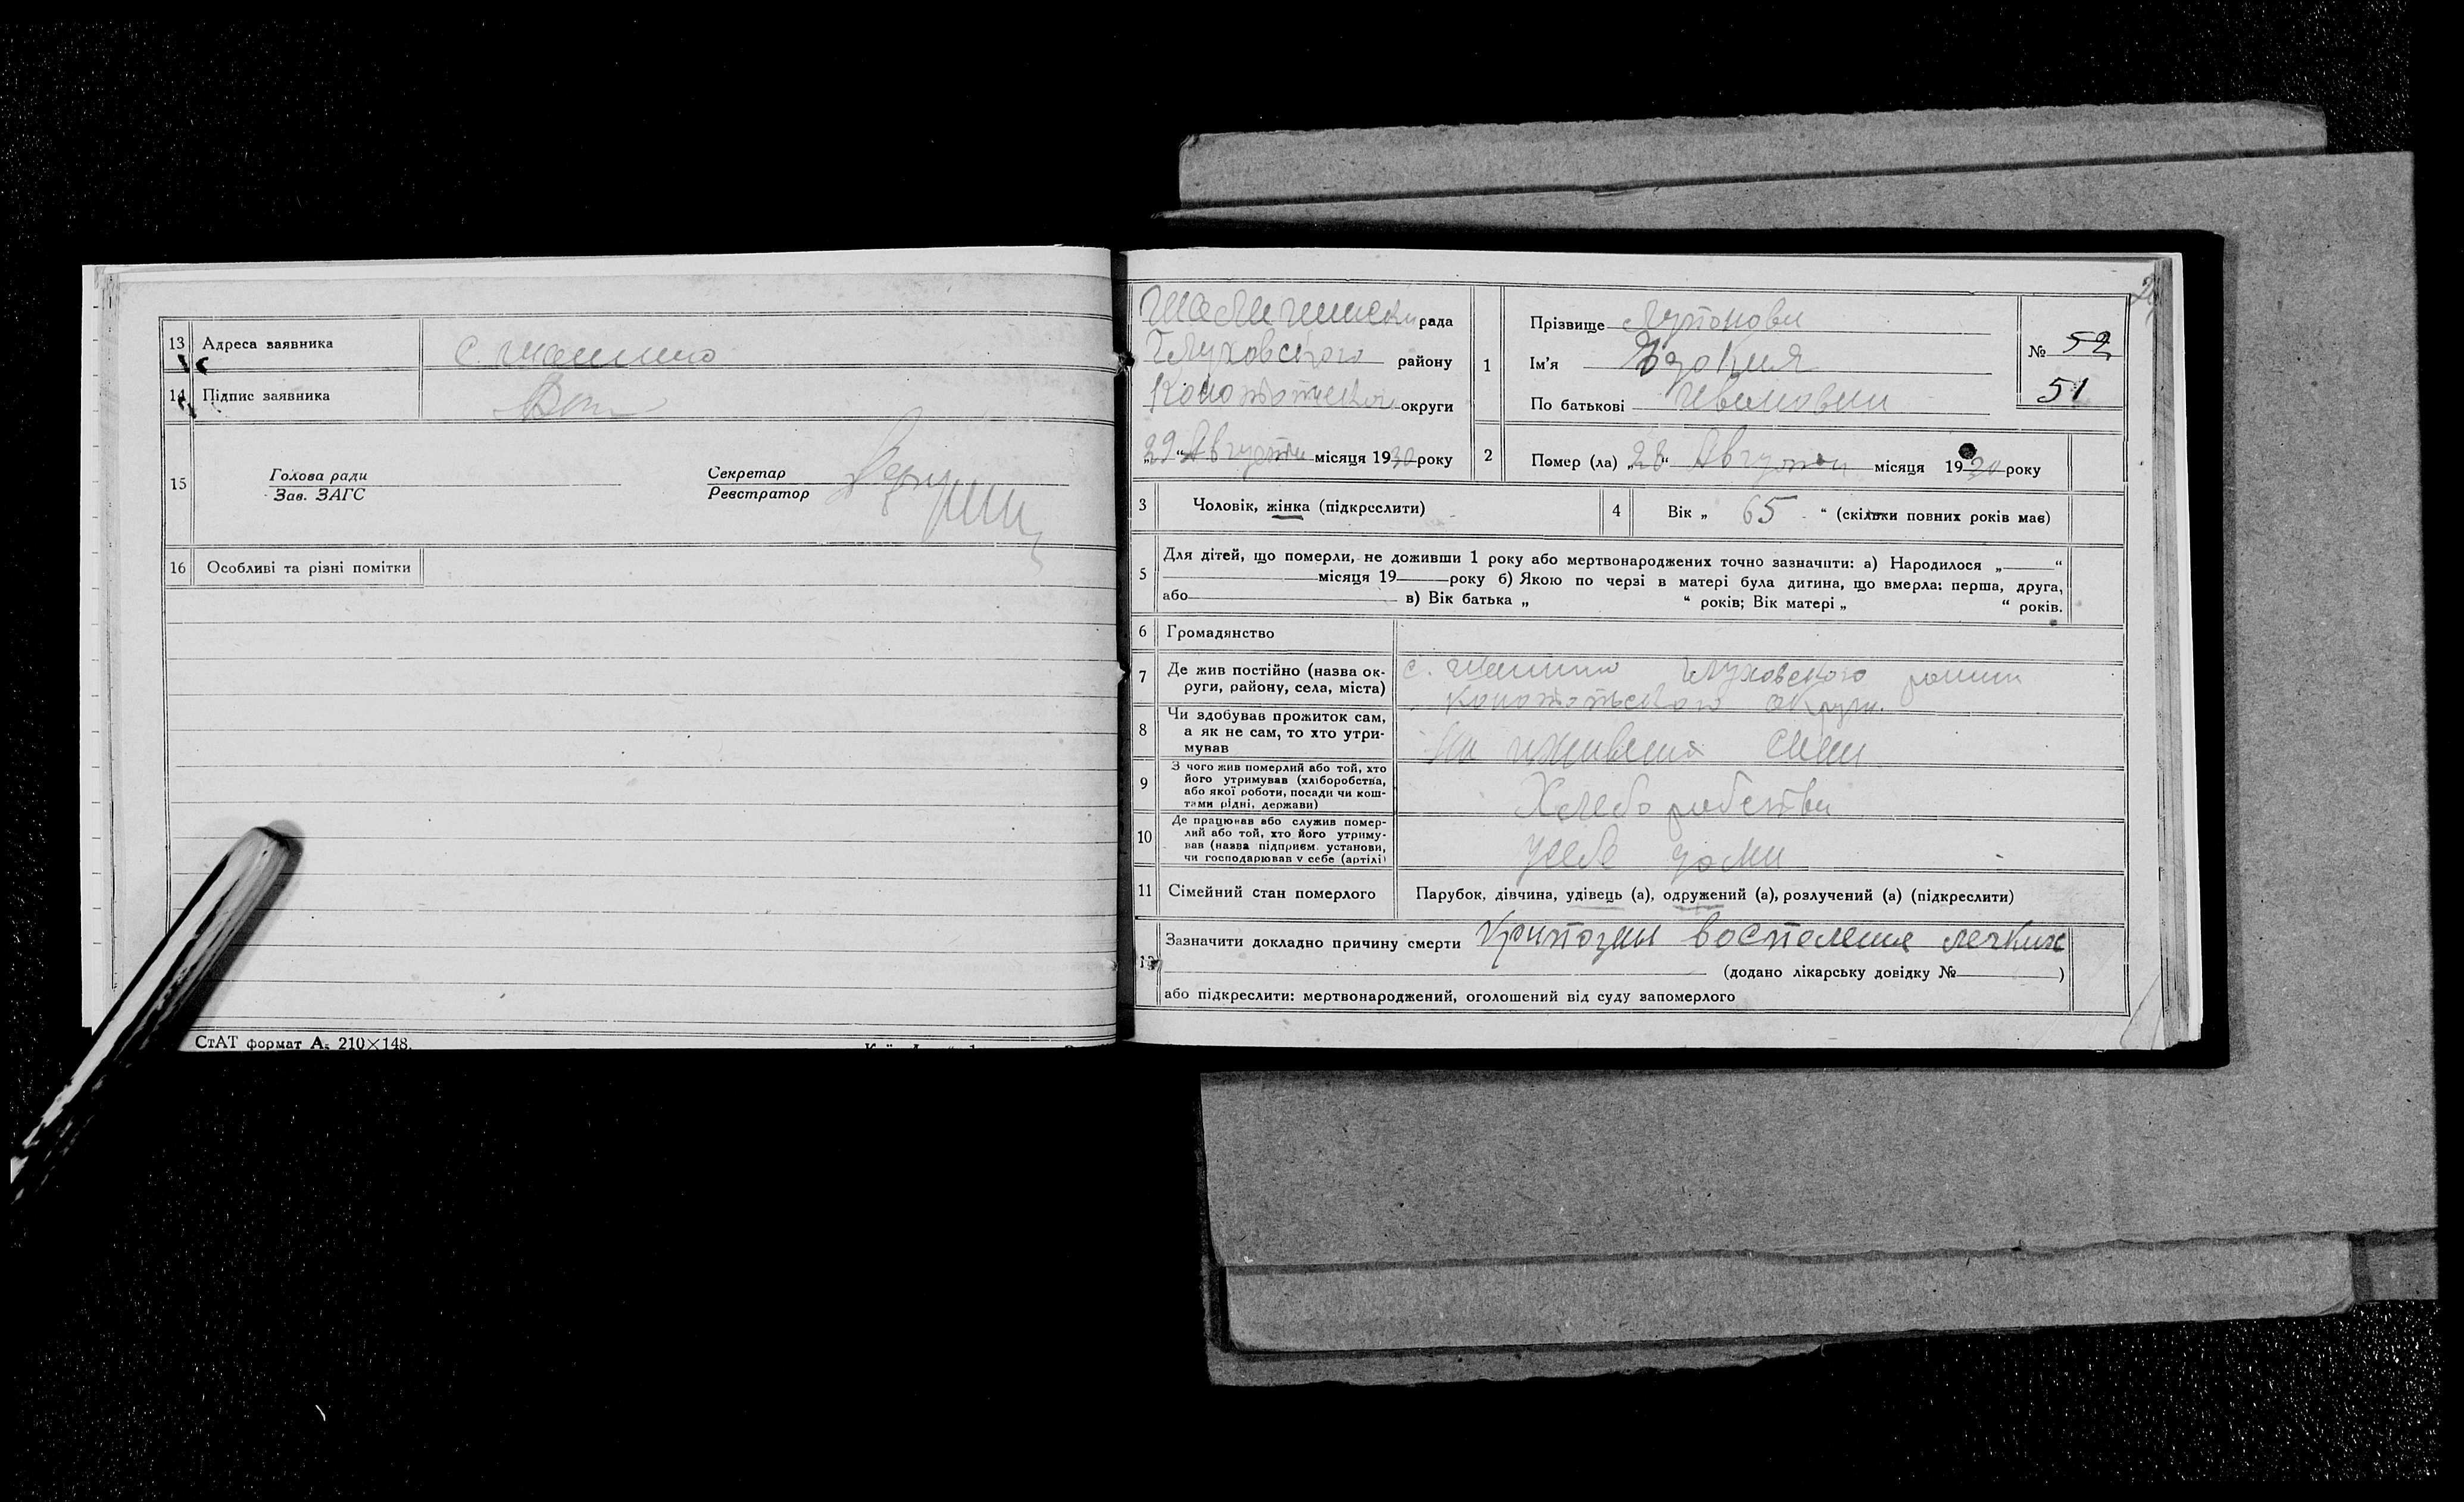 13 Адреса заявника
14 Підпис заявника
15 Голова ради
Зав. ЗАГС
Секретар
Реєстратор
16 Особливі та різні помітки
СтАТ формат А₅ 210×148.
рада
Глуховского району
округи
„29“ Августа місяця 1930 року
1 Прізвище
Ім'я
По батькові Ивановна
№ 52
51
2 Помер (ла) „28“ Августа місяця 1930 року
3 Чоловік, жінка (підкреслити)
4 Вік „ 65 “ (скільки повних років має)
5 Для дітей, що померли, не доживши 1 року або мертвонароджених точно зазначити: а) Народилося „ “
місяця 19 року б) Якою по черзі в матері була дитина, що вмерла: перша, друга,
або в) Вік батька „ “ років; Вік матері „ “ років.
6 Громадянство
7 Де жив постійно (назва ок-
руги, району, села, міста)
с. Глуховского
Конотопского Округи.
8 Чи здобував прожиток сам,
а як не сам, то хто утри-
мував
На
9 З чого жив померлий або той, хто
його утримував (хліборобства,
або якої роботи, посади чи кош-
тами рідні, держави)
Хлеборобства
10 Де працював або служив помер-
лий або той, хто його утриму-
вав (назва підприєм. установи,
чи господарював у себе (артілі)
усебе дома
11 Сімейний стан померлого
Парубок, дівчина, удівець (а), одружений (а), розлучений (а) (підкреслити)
12 Зазначити докладно причину смерти воспаление легких
(додано лікарську довідку № )
або підкреслити: мертвонароджений, оголошений від суду запомерлого